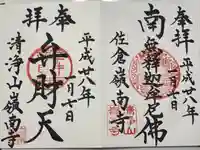 奉拝
平成廿八年
一月七日
南無釈迦牟尼佛
佐倉嶺南寺
奉拝
平成廿八年
一月七日
弁財天
清浄山嶺南寺